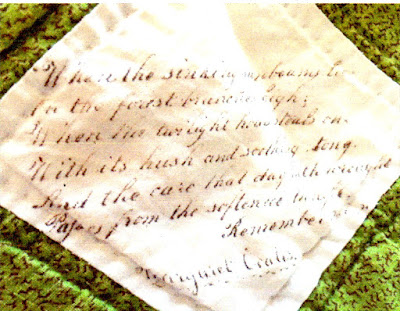 When the sinking sunbeams lie
In the forest branches high;
When the twilight hour steals on
With its hush and soothing song.
And the care that day hath wrought
Passes from the softened
Remember
Margaret